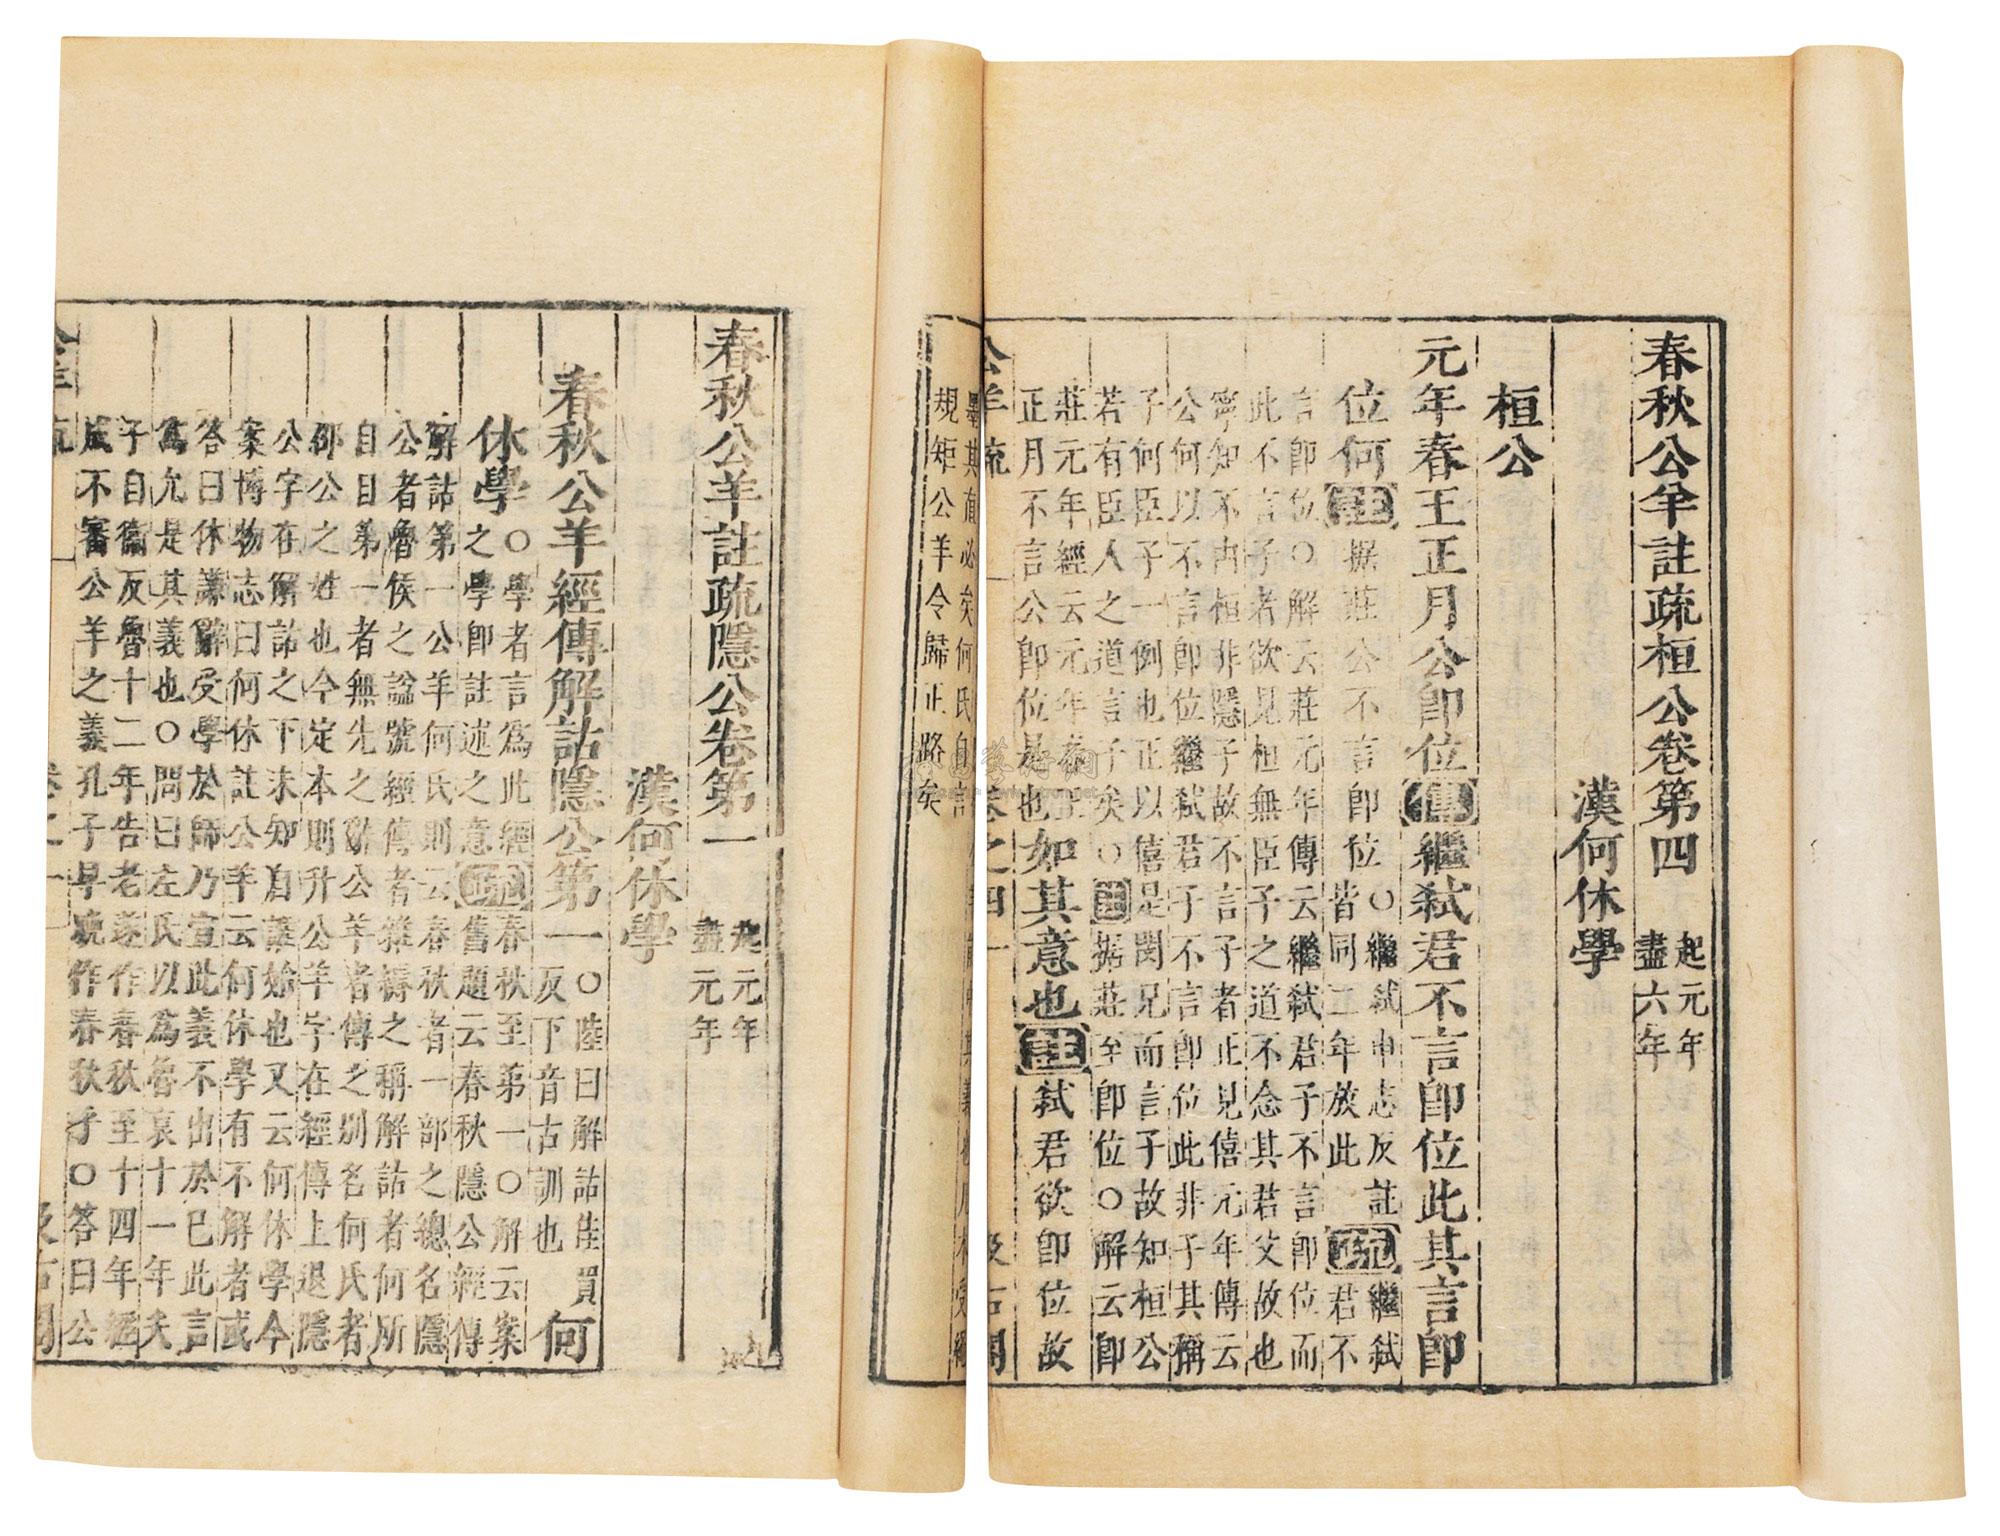 春秋公羊註疏桓公卷第四
起元年
盡六年
漢何休學
桓公
元年春王正月公即位傳繼弒君不言即位此其言即
位何註据莊公不言即位
○繼弒申志反註
皆同二年放此
疏
繼弒
君不
言即位○解云莊元年傳云繼弒君子不言即位而
此不言子者欲見桓無臣子之道不念其君父故也
寧知不由桓非隱子故不言子者正見僖元年傳云
公何以不言即位繼弒君子不言即位此非子其稱
子何臣子一例也正以僖是閔兄而言子故知桓公
若有臣人之道言子矣○註据莊至即位○解云即
莊元年經云元年春王
正月不言公即位是也
如其意也註弒君欲即位故
公羊疏 卷之四 一
規矩公羊令歸正路矣
春秋公羊註疏隱公卷第一
起元年
盡元年
漢何休學
春秋公羊經傳解詁隱公第一
○陸曰解詁佳買
反下音古訓也
何
休學
○學者言爲此經
之學即註述之意
疏
春秋至第一○解云案
舊題云春秋隱公經傳
解詁第一公羊何氏則云春秋者一部之總名隱
公者魯侯之謚號經傳者雜縟之稱解詁者何所
自目第一者無先之辭公羊者傳之別名何氏者
邵公之姓也今定本則升公羊字在經傳上退隱
公字在解詁之下未知自誰始也又云何休學今
案博物志曰何休註公羊云何休學有不解者或
答曰休謙辭受學於師乃宣此義不出於已此言
爲允是其義也○問曰左氏以爲魯哀十一年夫
子自衞反魯十二年告老遂作春秋至十四年經
成不審公羊之義孔子早晚作春秋乎○答曰公